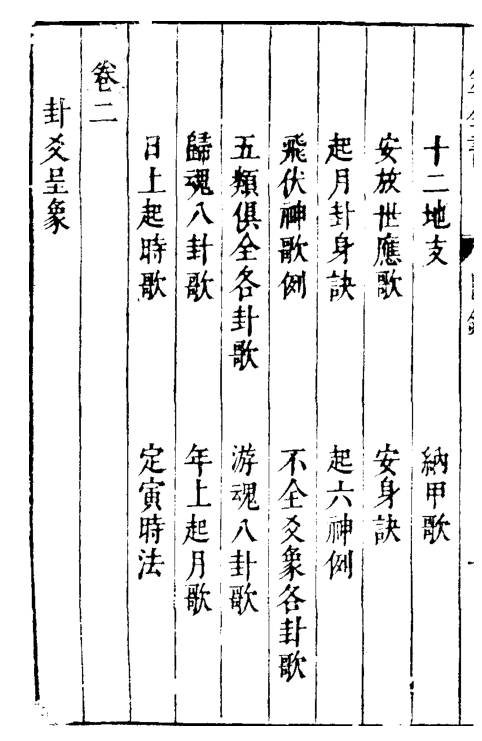 十二地支　納甲歌
安放世應歌　安身訣
起月卦身訣　起六神例
飛伏神歌例　不全爻象各卦歌
五類俱全各卦歌　游魂八卦歌
歸魂八卦歌　年上起月歌
日上起時歌　定寅時法
卷二
卦爻呈象